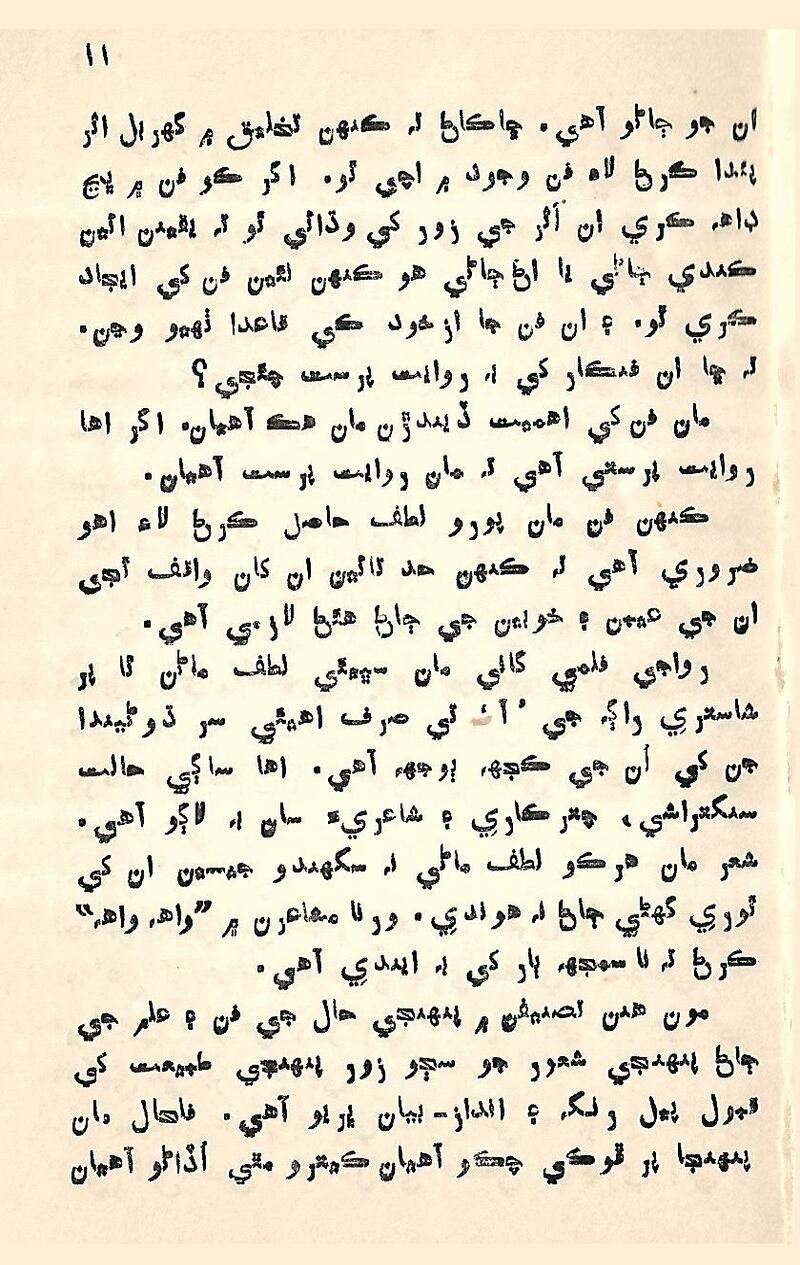 ١١
ان جو ڄاڻو آهي. ڇاڪاڻ تہ ڪنهن تخليق ۾ گهربل اثر
پئدا ڪرڻ لاءِ فن وجود ۾ اچي ٿو. اگر ڪو فن ۾ ڀڃ
ڊاهہ ڪري ان اُثر جي زور کي وڌائي ٿو تہ يقينن ائين
ڪندي ڄاڻي يا اڻ ڄاڻي هو ڪنهن نئين فن کي ايجاد
ڪري ٿو. ۽ ان فن جا ازخود ڪي قاعدا ٺهيو وڃن.
تہ ڇا ان فنڪار کي بہ روايت پرست چئجي؟
مان فن کي اهميت ڏيندڙن مان هڪ آهيان. اگر اها
روايت پرستي آهي تہ مان روايت پرست آهيان.
ڪنهن فن مان پورو لطف حاصل ڪرڻ لاءِ اهو
ضروري آهي تہ ڪنهن حد تائين ان کان واقف ٿجي
ان جي عيبن ۽ خوبين جي ڄاڻ هئڻ لازمي آهي.
رواجي فلمي گاني مان سڀيئي لطف ماڻن ٿا پر
شاستري راڳہ جي ’آ‘ تي صرف اهيئي سر ڌوڻيندا
جن کي اُن جي ڪجهہ ٻوجهہ آهي. اها ساڳي حالت
سنگتراشي، چترڪاري ۽ شاعريءَ سان بہ لاڳو آهي.
شعر مان هرڪو لطف ماڻي نہ سگهندو جيسين ان کي
ٿوري گهڻي ڄاڻ نہ هوندي. ورنا مشاعرن ۾ ”واهہ واهہ“
ڪرڻ تہ نا سمجهہ ٻار کي بہ ايندي آهي.
مون هنن تصنيفن ۾ پنهنجي حال جي فن ۽ علم جي
ڄاڻ پنهنجي شعور جو سڄو زور پنهنجي طبيعت کي
قبول پيل رنگہ ۽ انداز-بيان ڀريو آهي. فالحال مان
پنهنجا پر ڦوڪي چڪو آهيان ڪيترو مٿي اُڏاڻو آهيان